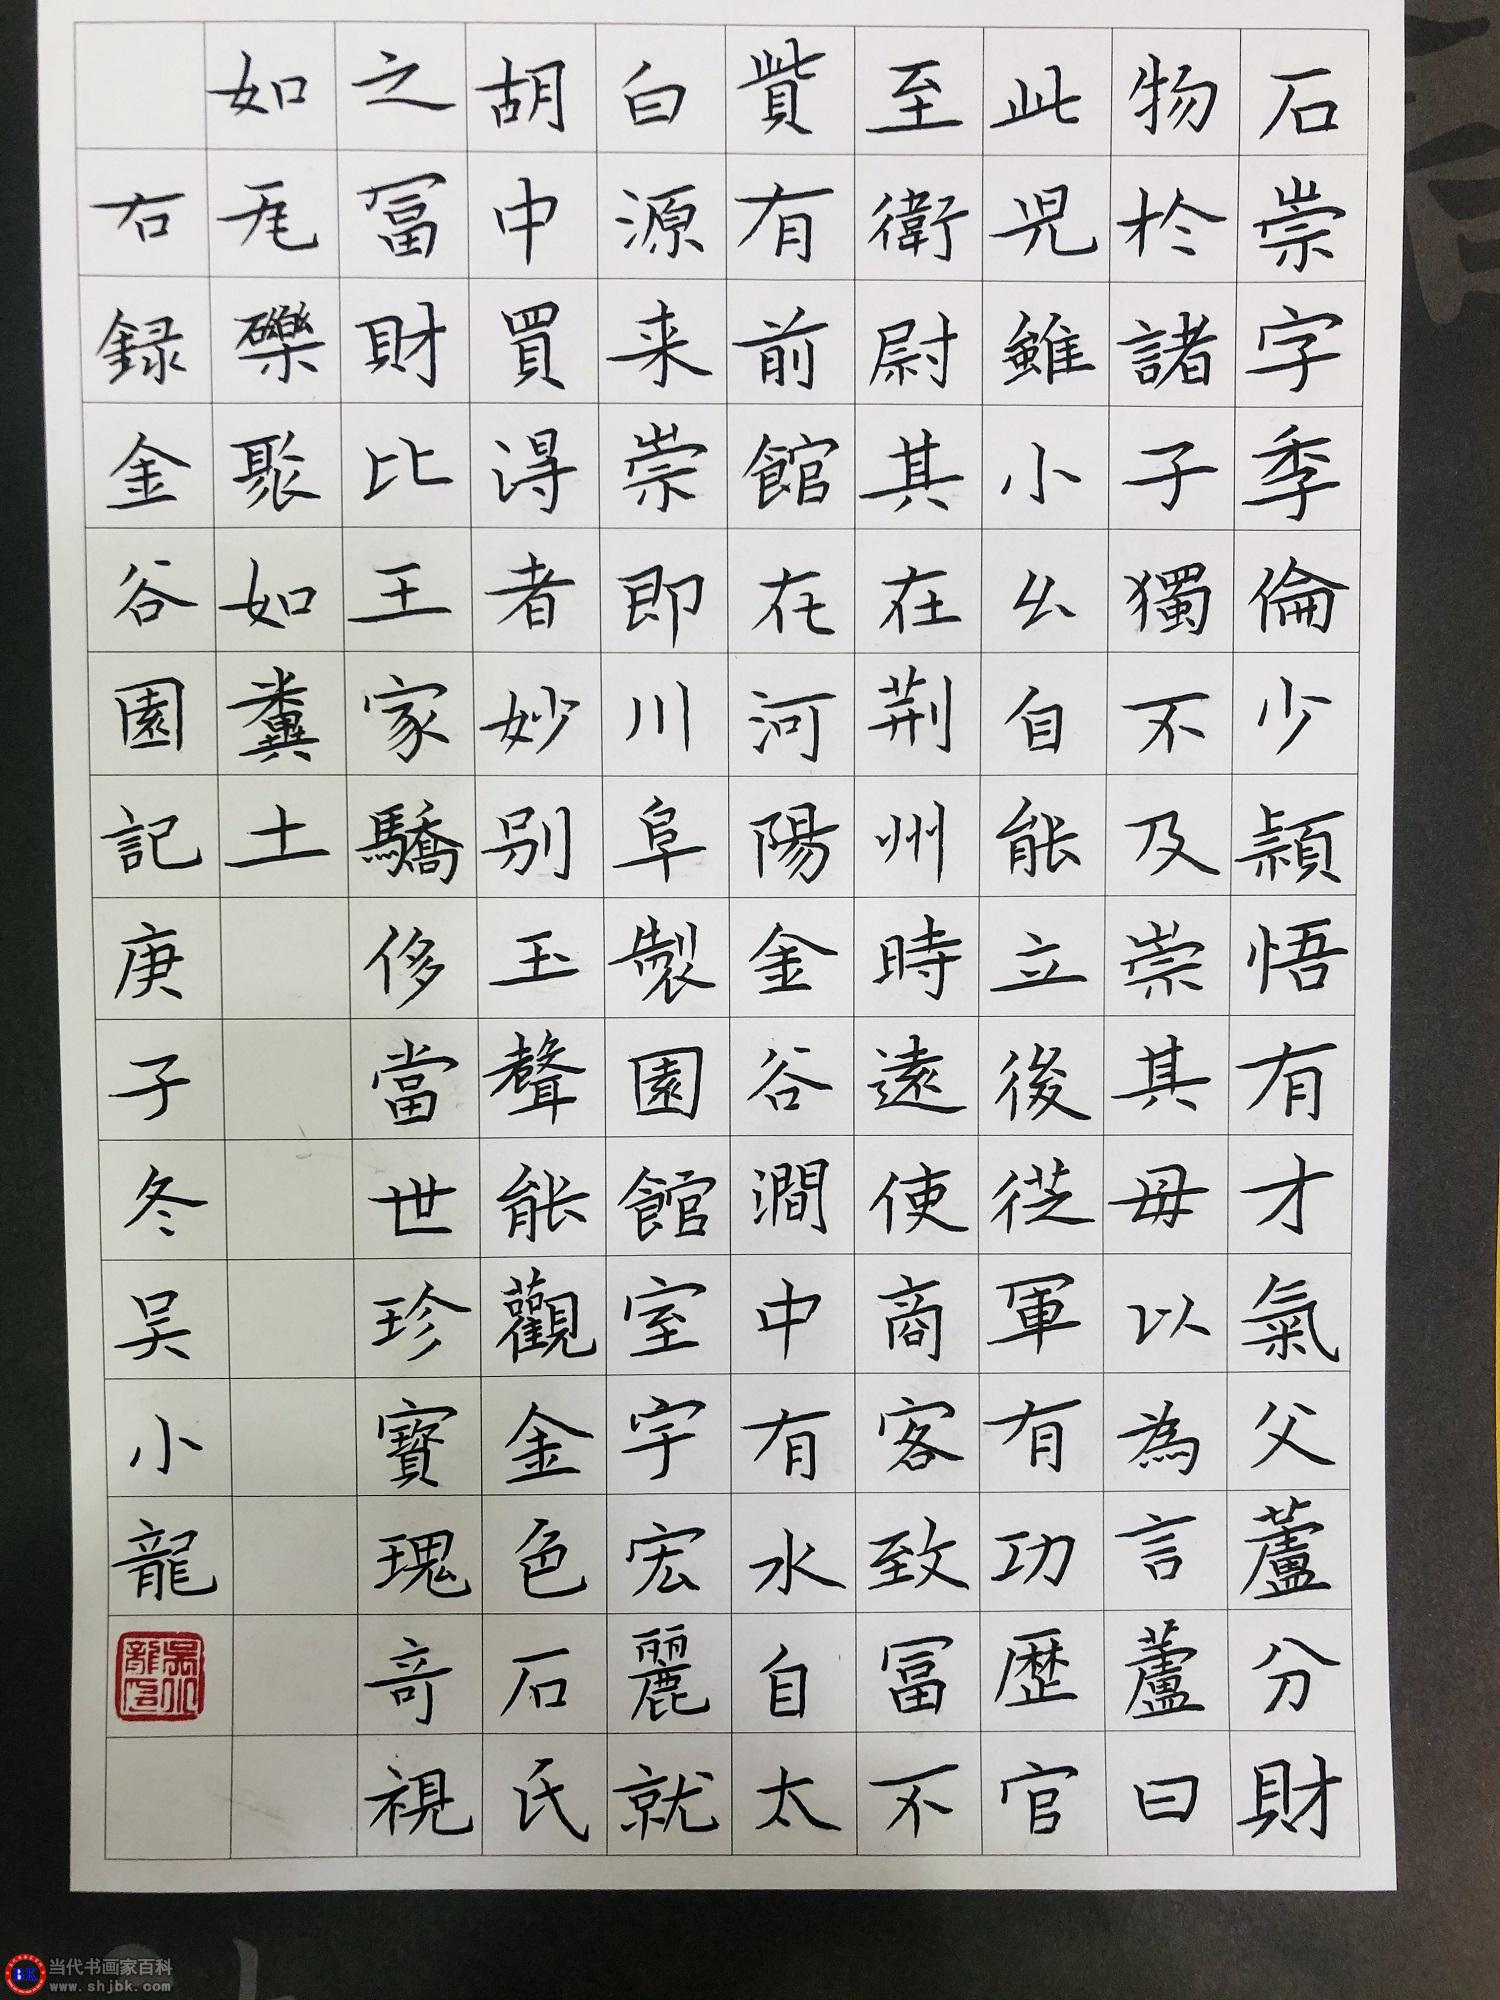 石崇字季倫少穎悟有才氣父蘆分財
物於諸子獨不及崇其母以為言蘆曰
此児雖小幺自能立後從軍有功歷官
至衛尉其在荆州時遠使商客致冨不
貲有前館在河陽金谷澗中有水自太
白源来崇即川阜製園館室宇宏麗就
胡中買得者妙别玉聲能觀金色石氏
之冨財比王家驕侈當世珍寶瑰奇視
如瓦礫聚如糞土
右録金谷園記庚子冬吴小龍
吴小龍印
当代书画家百科
www.shjbk.com